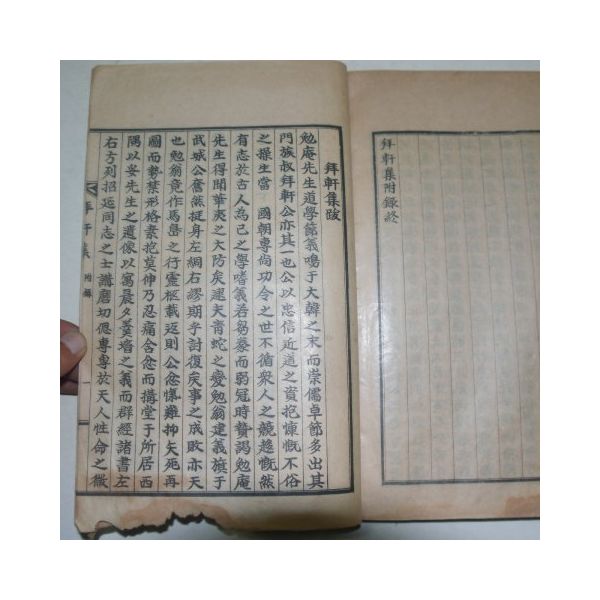 拜軒集附錄終
拜軒集跋
勉庵先生道學節義鳴于大韓之末而崇儒卓節多出其
門族叔拜軒公亦其一也公以忠信近道之資抱慷慨不俗
之操生當 國朝專尙功令之世不循衆人之競趍慨然
有志於古人爲己之學嗜義若芻豢而弱冠時贄謁勉庵
先生得聞華夷之大防矣逮夫靑蛇之變勉翁建義旗于
武城公奮然挺身左綢右繆期乎討復矣事之成敗亦天
也勉翁竟作馬島之行靈柩載返則公愈慷難抑矢死再
圖而勢禁形格素抱莫伸乃忍痛含怨而搆堂于所居西
隅以妥先生之遺像以寓晨夕羹墻之義而群經諸書左
右方列招延同志之士講磨切偲專專於天人性命之微
拜軒集 附錄 一